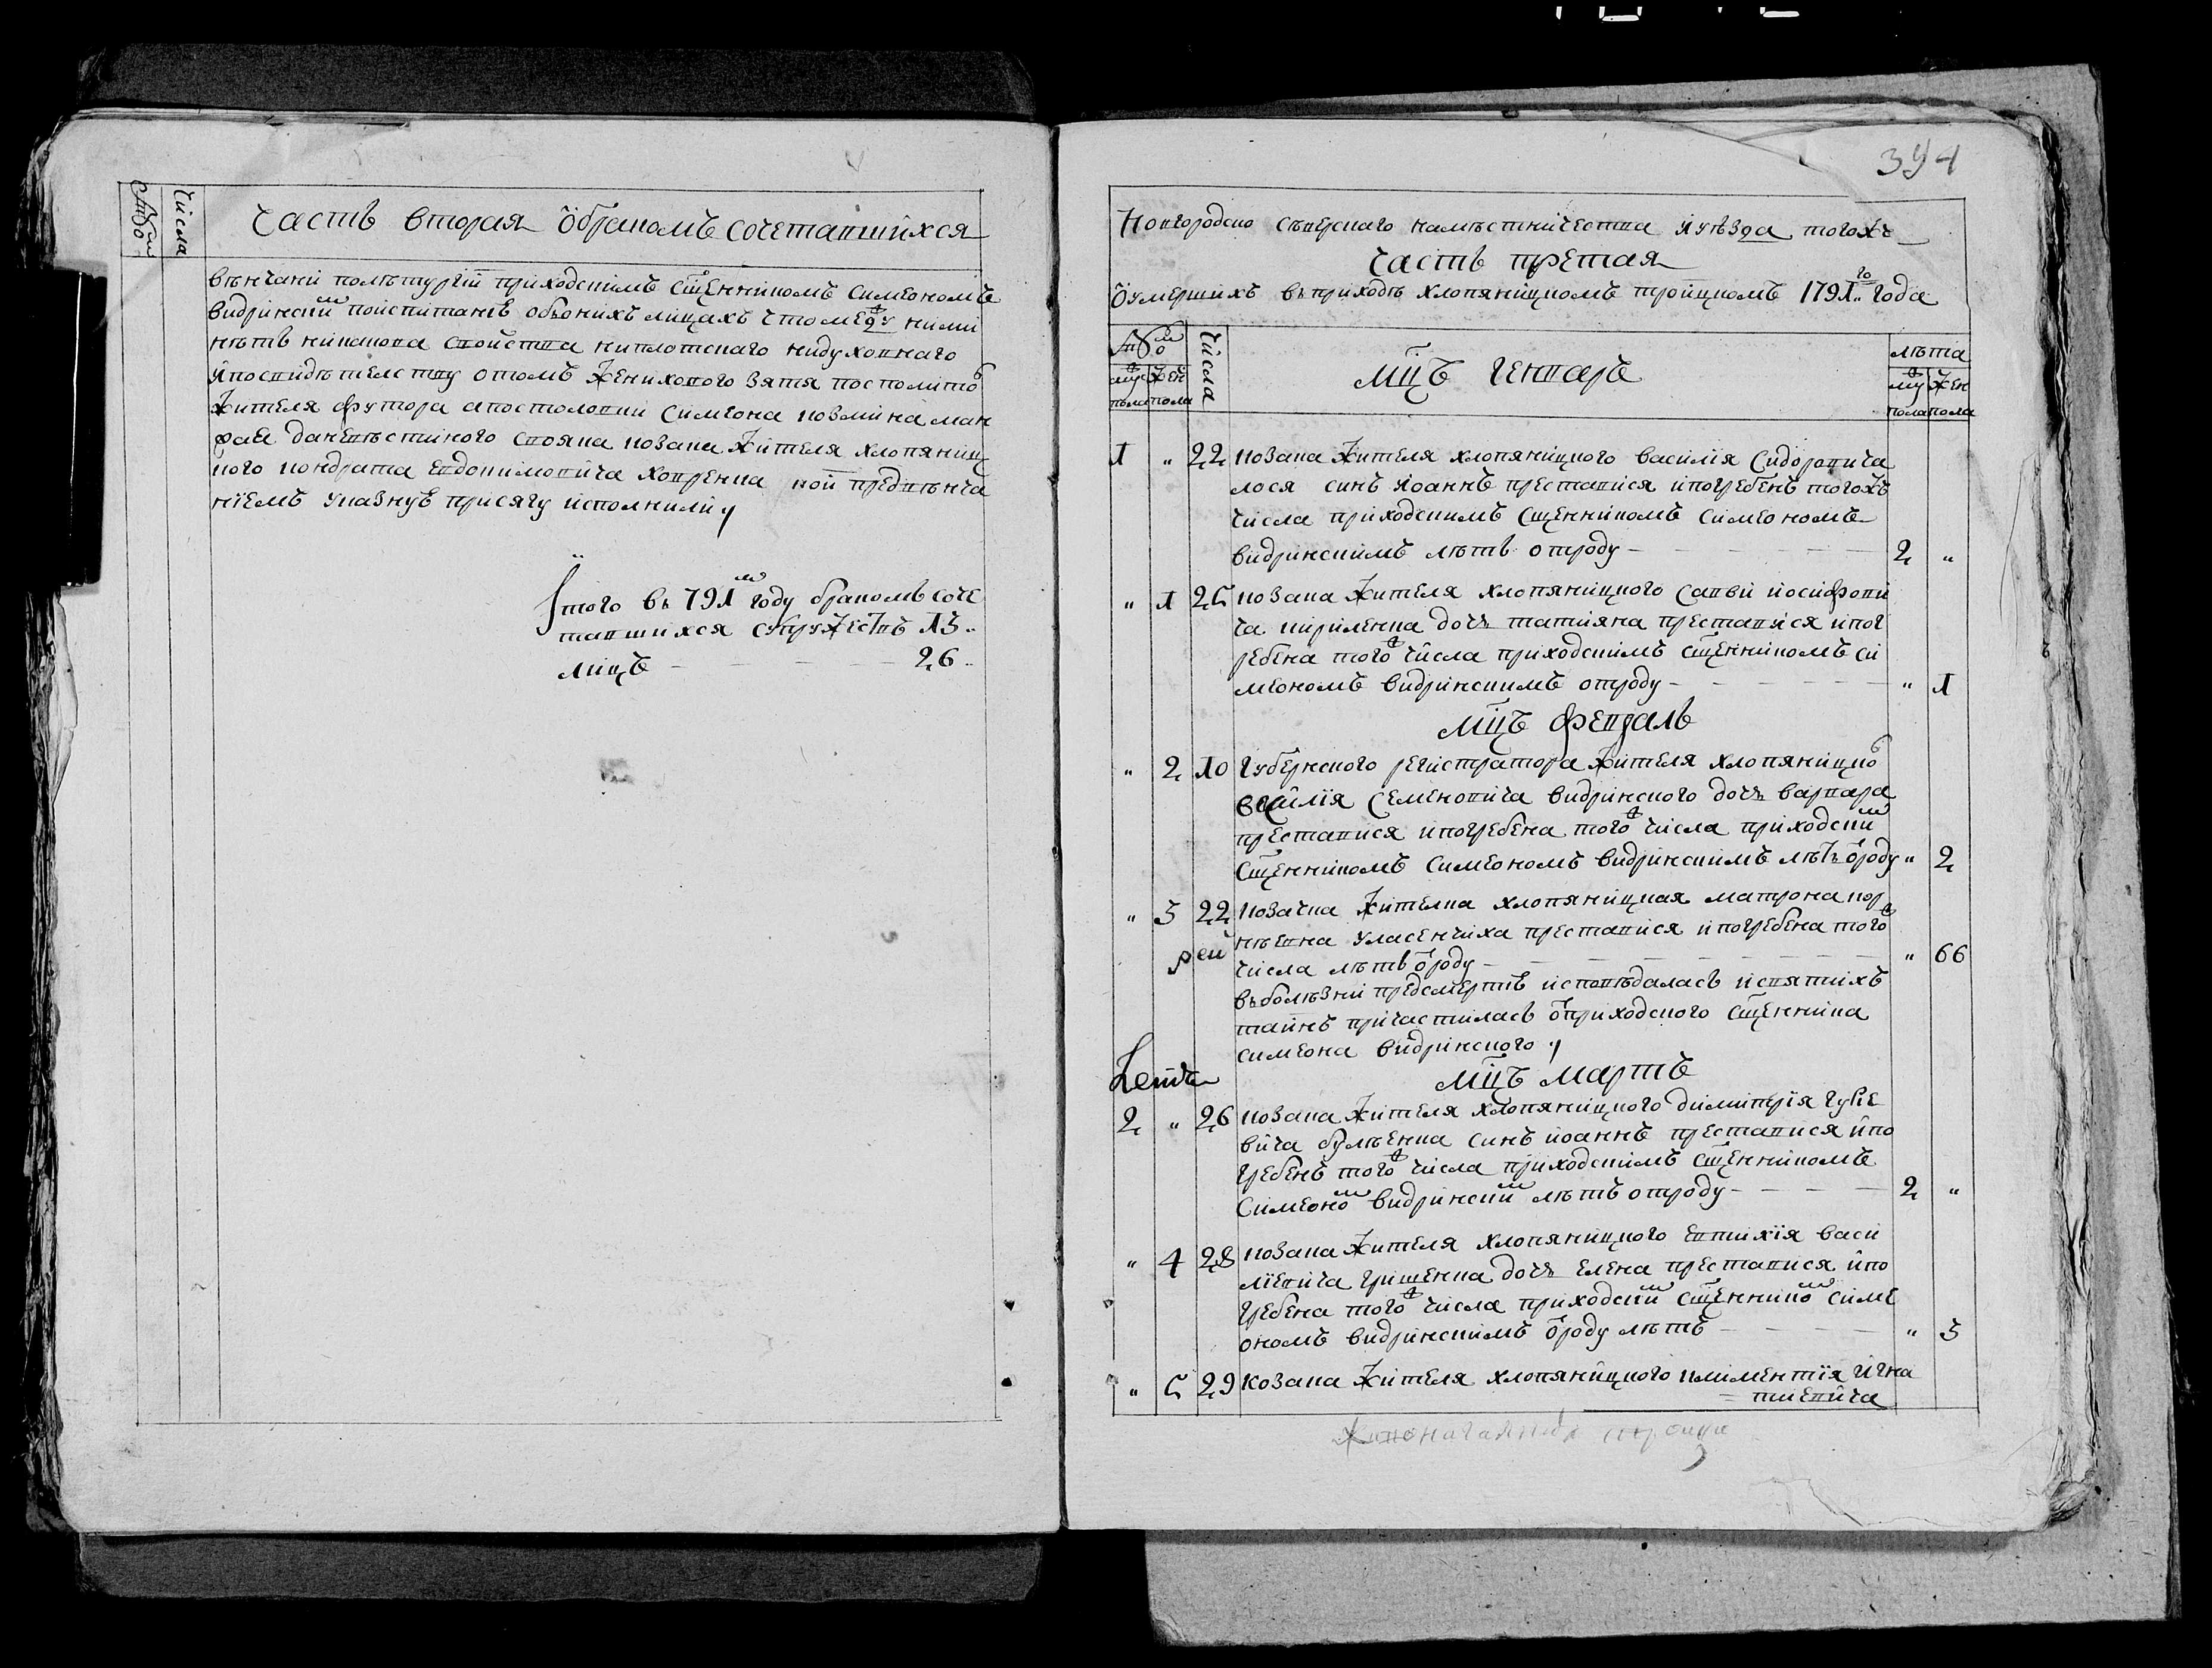 Числа
Часть вторая о бракомъ сочетавшихся
венчани полѣтургіи приходскимъ сщенникомъ Симеономъ
видринским поиспитанѣ обоюнихъ лицахъ что между ними
нѣтъ никакова свойства ниплотскаго нидуховнаго
ипосвидѣтелству отомъ женихового зятя посполито
жителя футора апостоловки Симеона
жителя хлопяниц
кого кондрата Евдокимовича кои предвѣнча
ніемъ указную присягу исполнили
Ітого въ 791м году бракомъ соче
тавшихся супружествъ 13
лицъ 26
394
Новгородско сѣверскаго намѣстничества и уѣзда того ж
Часть третая
О умершихъ въ приходѣ хлопяницкомъ троицкомъ 1791го года
Числа
Мцъ Генваръ
лѣта
муж жен
пола пола
муж жен
пола пола
1 " 22 козака жителя хлопяницкого василія Сидоровича
лося синъ Иоаннъ преставися ипогребенъ тогожъ
числа приходскимъ сщенникомъ симеономъ
видринскимъ лѣтъ отроду 2 "
" 1 25 козака жителя хлопяницкого Саввы иосифови
ча кириленка дочъ татияна преставися ипог
ребена того ж числа приходскимъ сщенникомъ си
меономъ видринскимъ отроду " 1
Мцъ февраль
" 2 10 губернского регистратора жителя хлопяницко
василія Семеновича видринского дочъ варвара
преставися ипогребена того ж числа приходским
сщенникомъ симеономъ видринскимъ лѣтъ ѿроду " 2
" 3 22 козачка жителка хлопяницкая матрона кор
нѣевна уласенчиха преставися ипогребена того ж
числа лѣтъ ѿроду " 66
въболѣзни предсмертѣ исповѣдалась исвятихъ
таинъ причастилась ѿприходского сщенника
симеона видринского
Мцъ мартъ
2 " 26 козака жителя хлопяницкого димитрія гурие
вича синъ иоаннъ преставися ипо
гребенъ того ж числа приходскимъ сщенникомъ
Симеоном видринским лѣтъ отроду 2 "
" 4 28 козака жителя хлопяницкого евтихія васи
лієвича грищенка дочъ елена преставися ипо
гребена того ж числа приходским сщенником симе
ономъ видринскимъ ѿроду лѣтъ " 3
" 5 29 козака жителя хлопяницкого климентія игна
тиевича